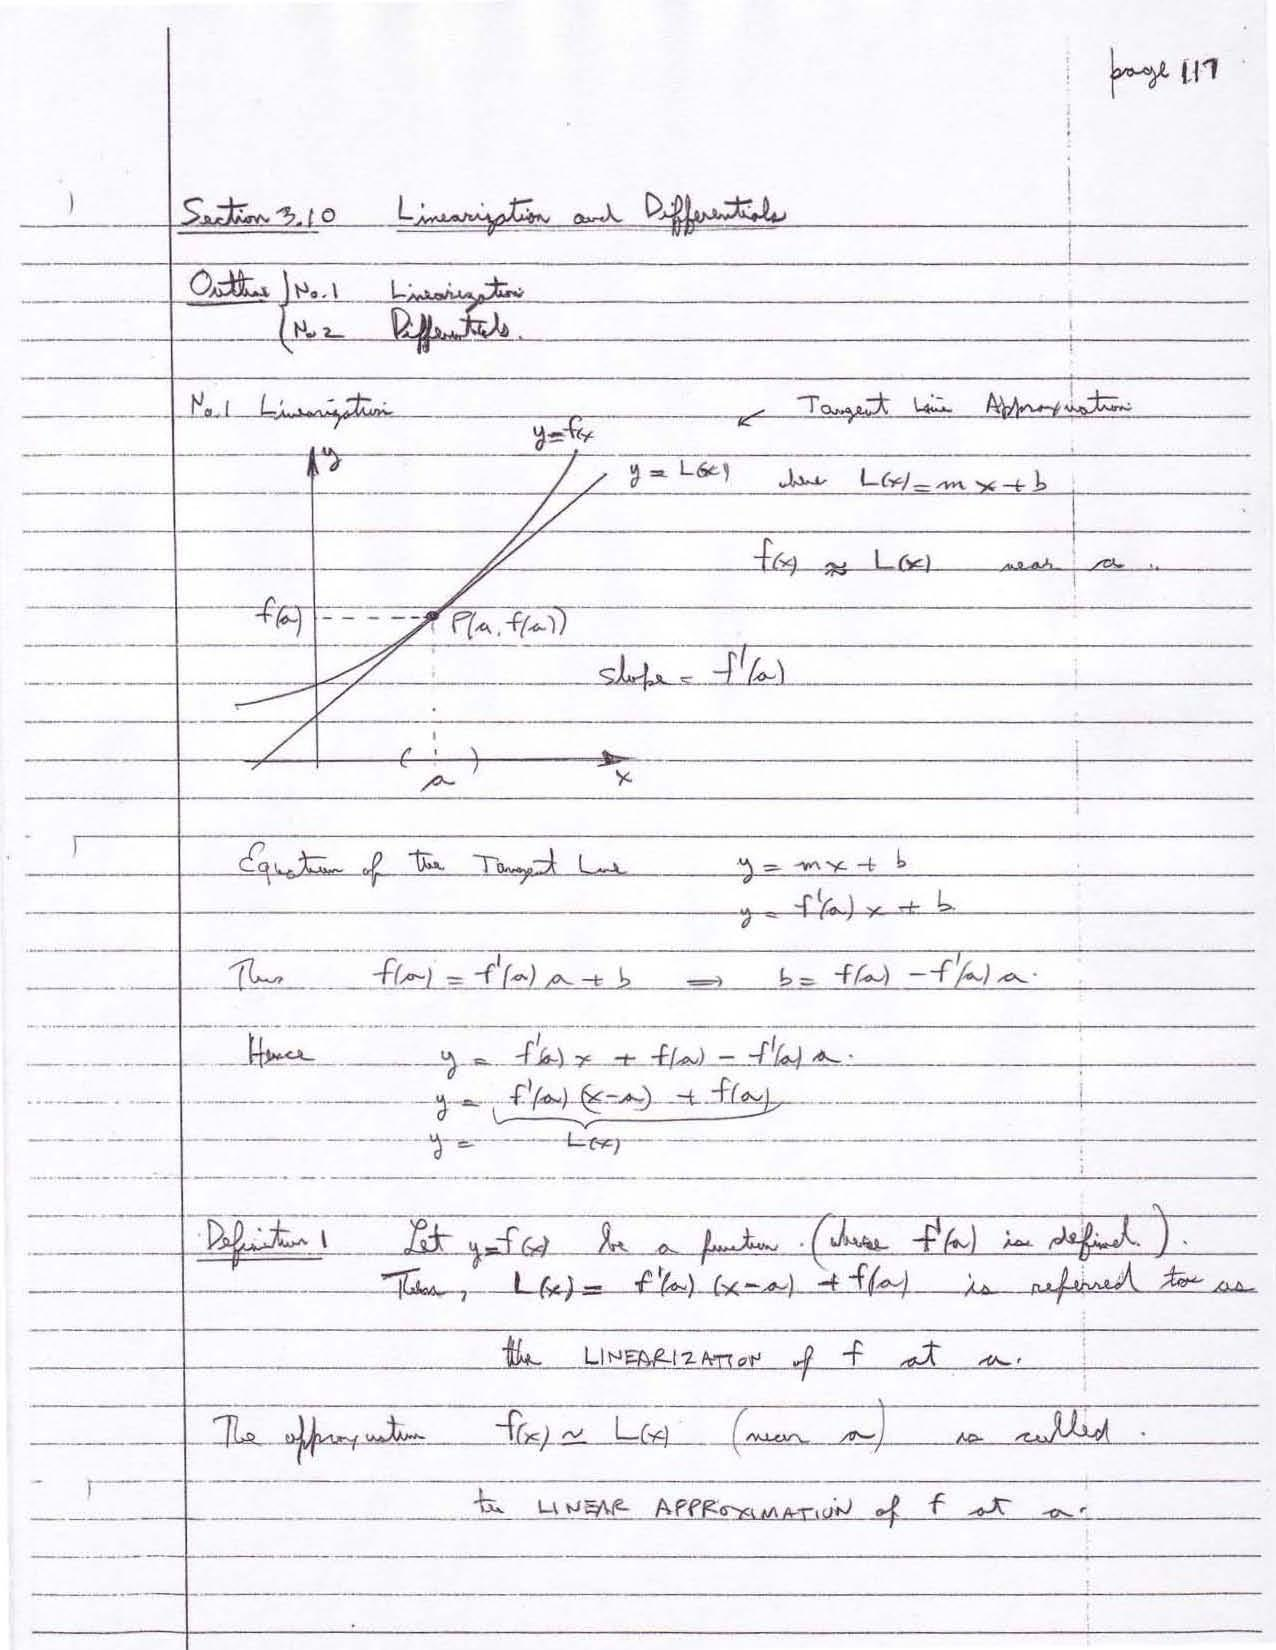 page 117
Section 3.10 Linearization and Differentials
Outline No.1 Linearization
No 2 Differentials.
No.1 Linearization
Tangent Line Approximation
y=f(x
y = L(x) where L(x)=mx+b
y
f(x) ≈ L(x) near a..
f(a) P(a, f(a))
slope = f'(a)
( )
a x
Equation of the Tangent Line y = mx + b
y = f'(a) x + b.
Thus f(a) = f'(a) a + b ⇒ b = f(a) - f'(a) a.
Hence y = f'(a) x + f(a) - f'(a) a.
y = f'(a) (x-a) + f(a)
y = L(x)
Definition 1 Let y=f(x) be a function. (where f'(a) is defined.).
Then, L(x) = f'(a) (x-a) + f(a) is referred to as
the LINEARIZATION of f at a.
The approximation f(x) ≃ L(x) (near a) is called.
the LINEAR APPROXIMATION of f at a.